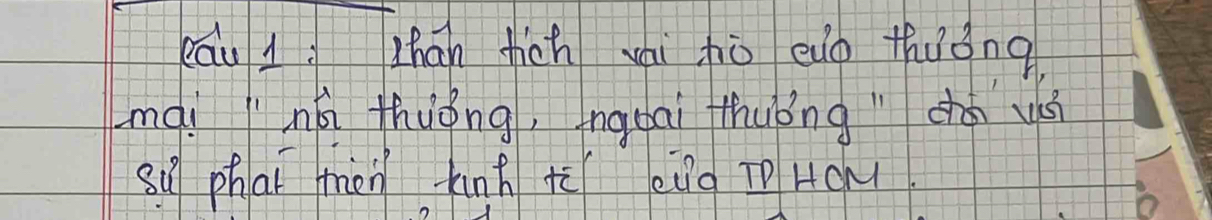 Câu 1 : Phân tích vai trò của thương
mại " nội thương, ngoại thương" đối với
sự phát triển kinh tế của TP HCM.